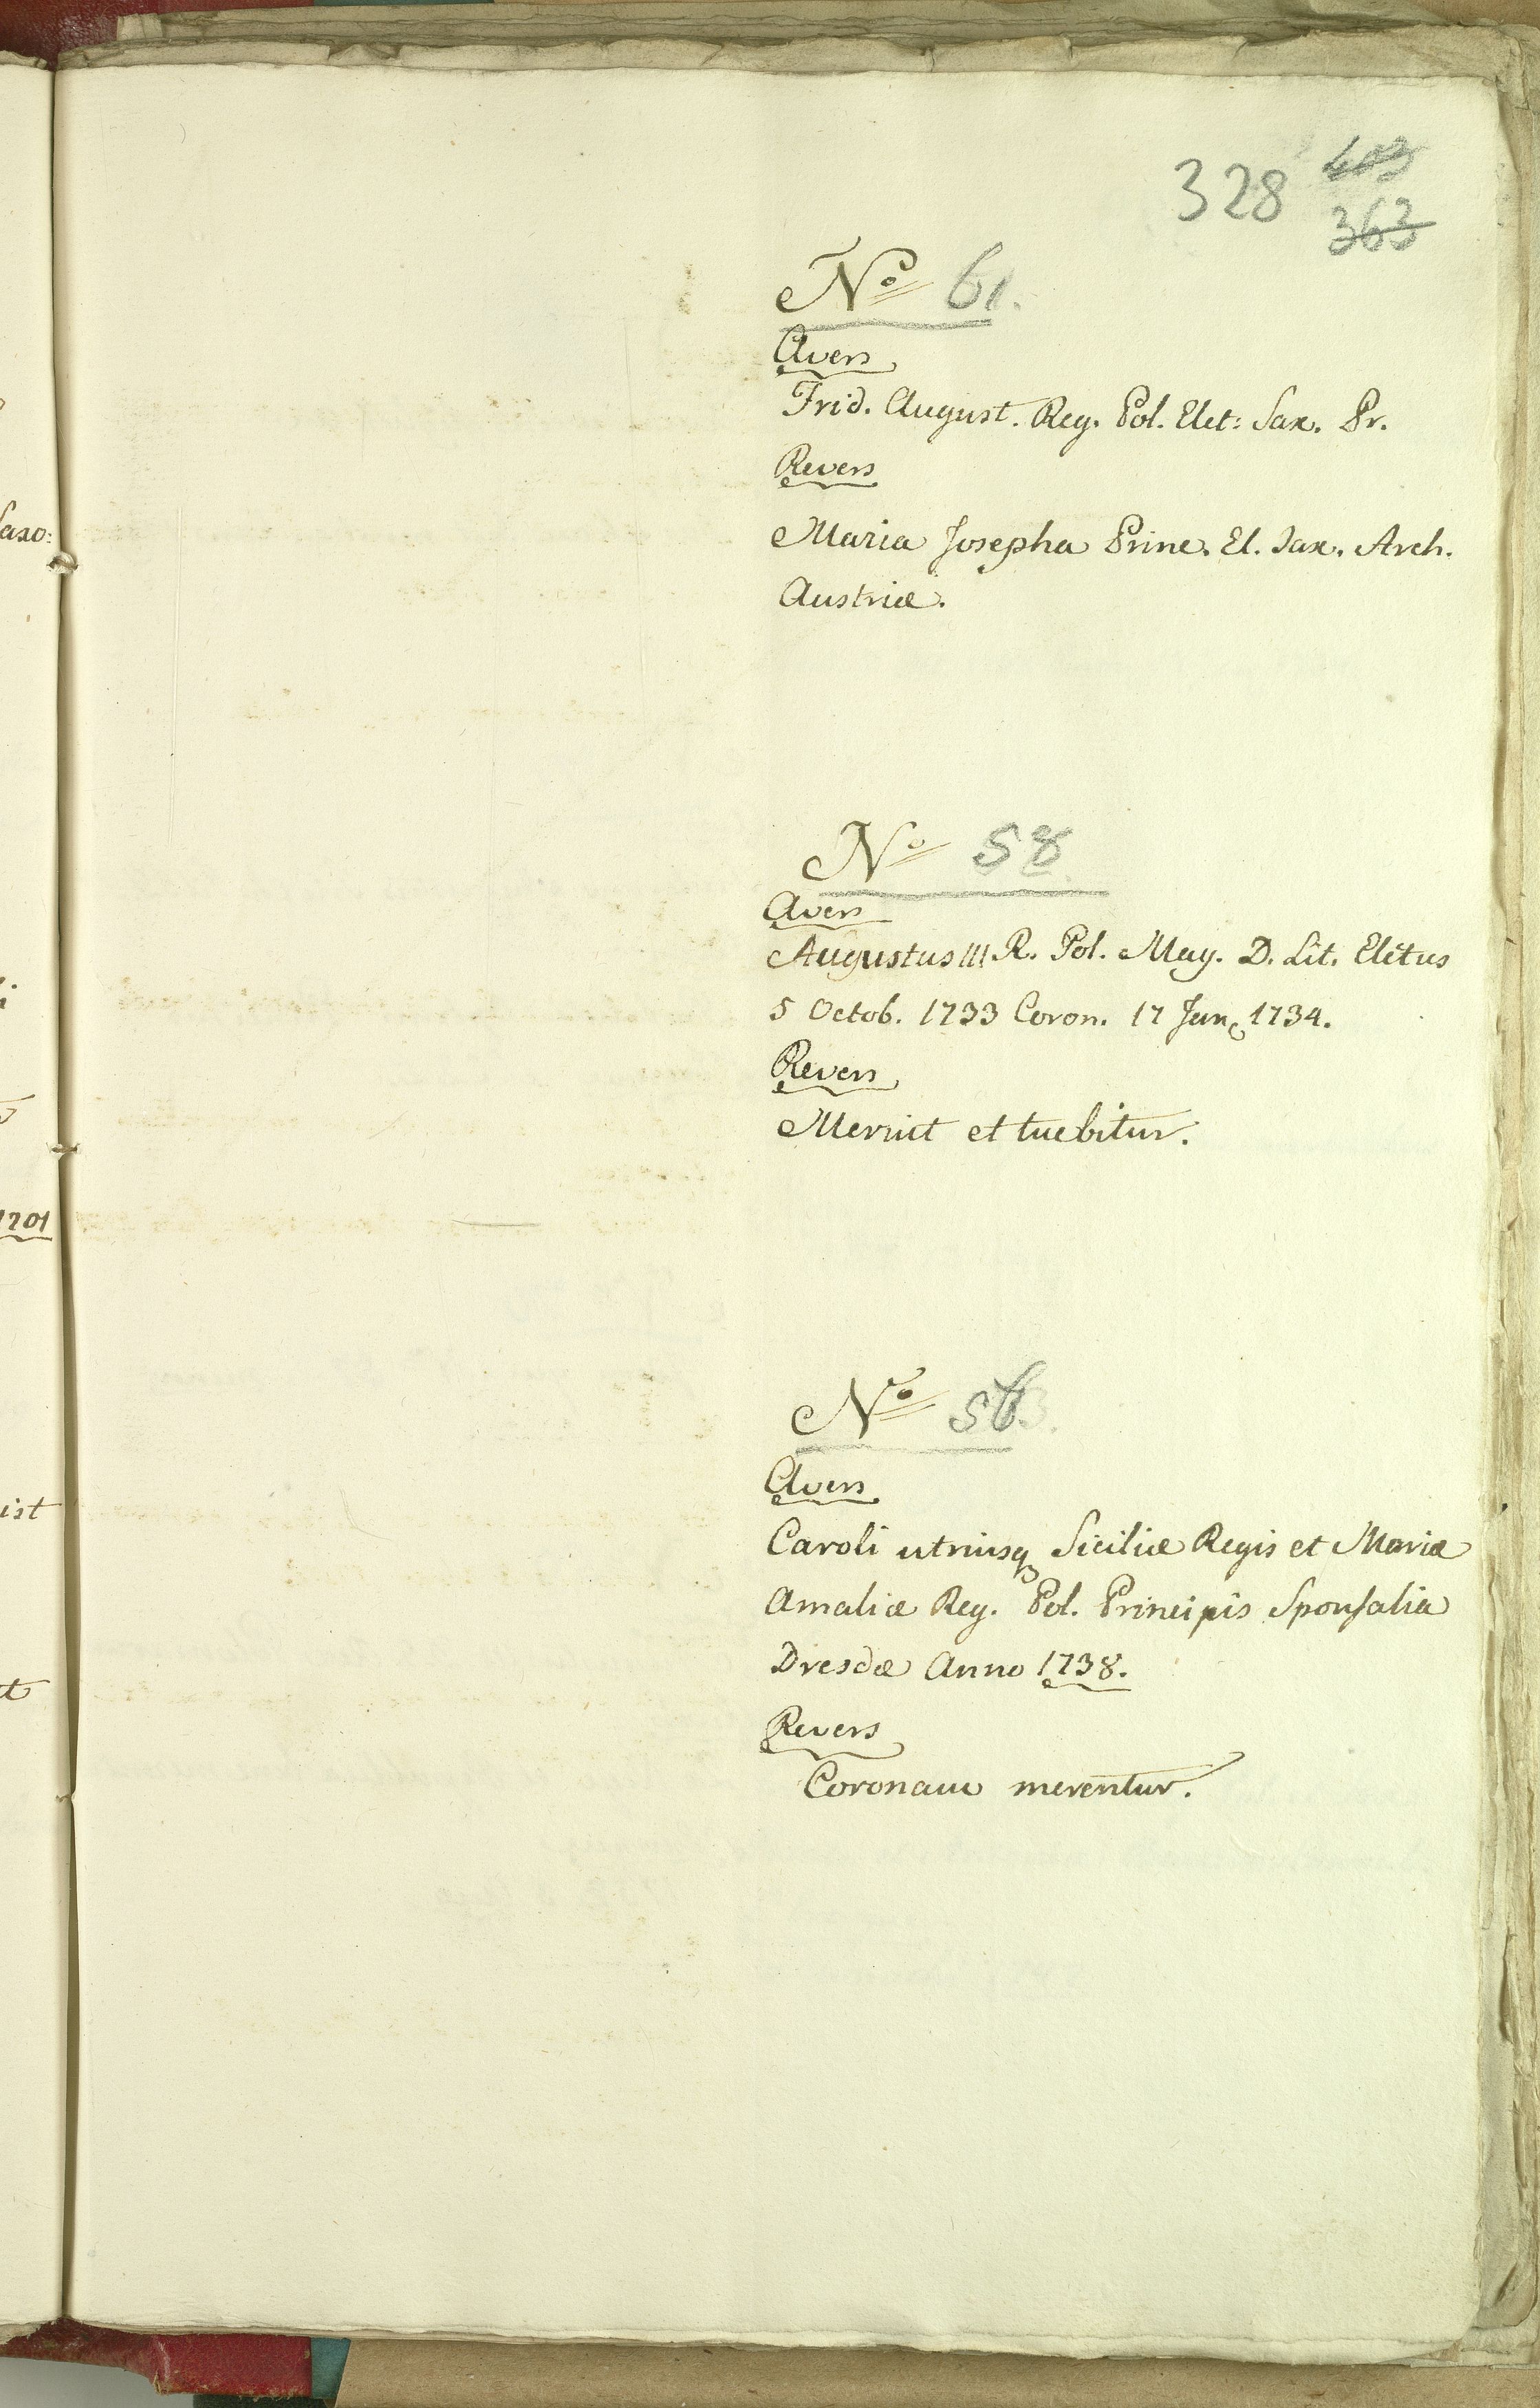 328 403
363
No 61.
Avers
Frid. August. Reg. Pol. Elct: Sax. Pr.
Revers
Maria Josepha Princ. El. Sax. Arch.
Austriæ.
No 58
Avers
Augustus III R. Pol. Mag. D. Lit. Elētus
5 Octob. 1733 Coron. 17 Jan, 1734.
Revers
Meruit et tuebitur.
No 56.
Avers
Caroli utriusq3 Siciliæ Regis et Mariæ
Amaliæ Reg. Pol. Principis Sponsalia
Dresdæ Anno 1738.
Revers
Coronam merentur.
Saxo:
1701
ist